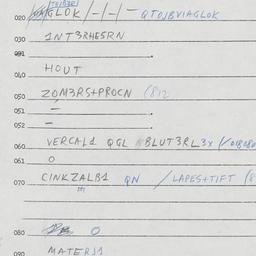 020 GLOK /-/-/- QTOJBVIAGLOK
030 1NT3RHESRN
031
040 HOUT
050 ZOM3RS+PROCN (812
051 -
052 -
060 VERCAL1 QGL BLUT3RL3X
061 O
070 CINKZALB1 QN / LAPES+TIFT (8
080 O
090 MATERJ1